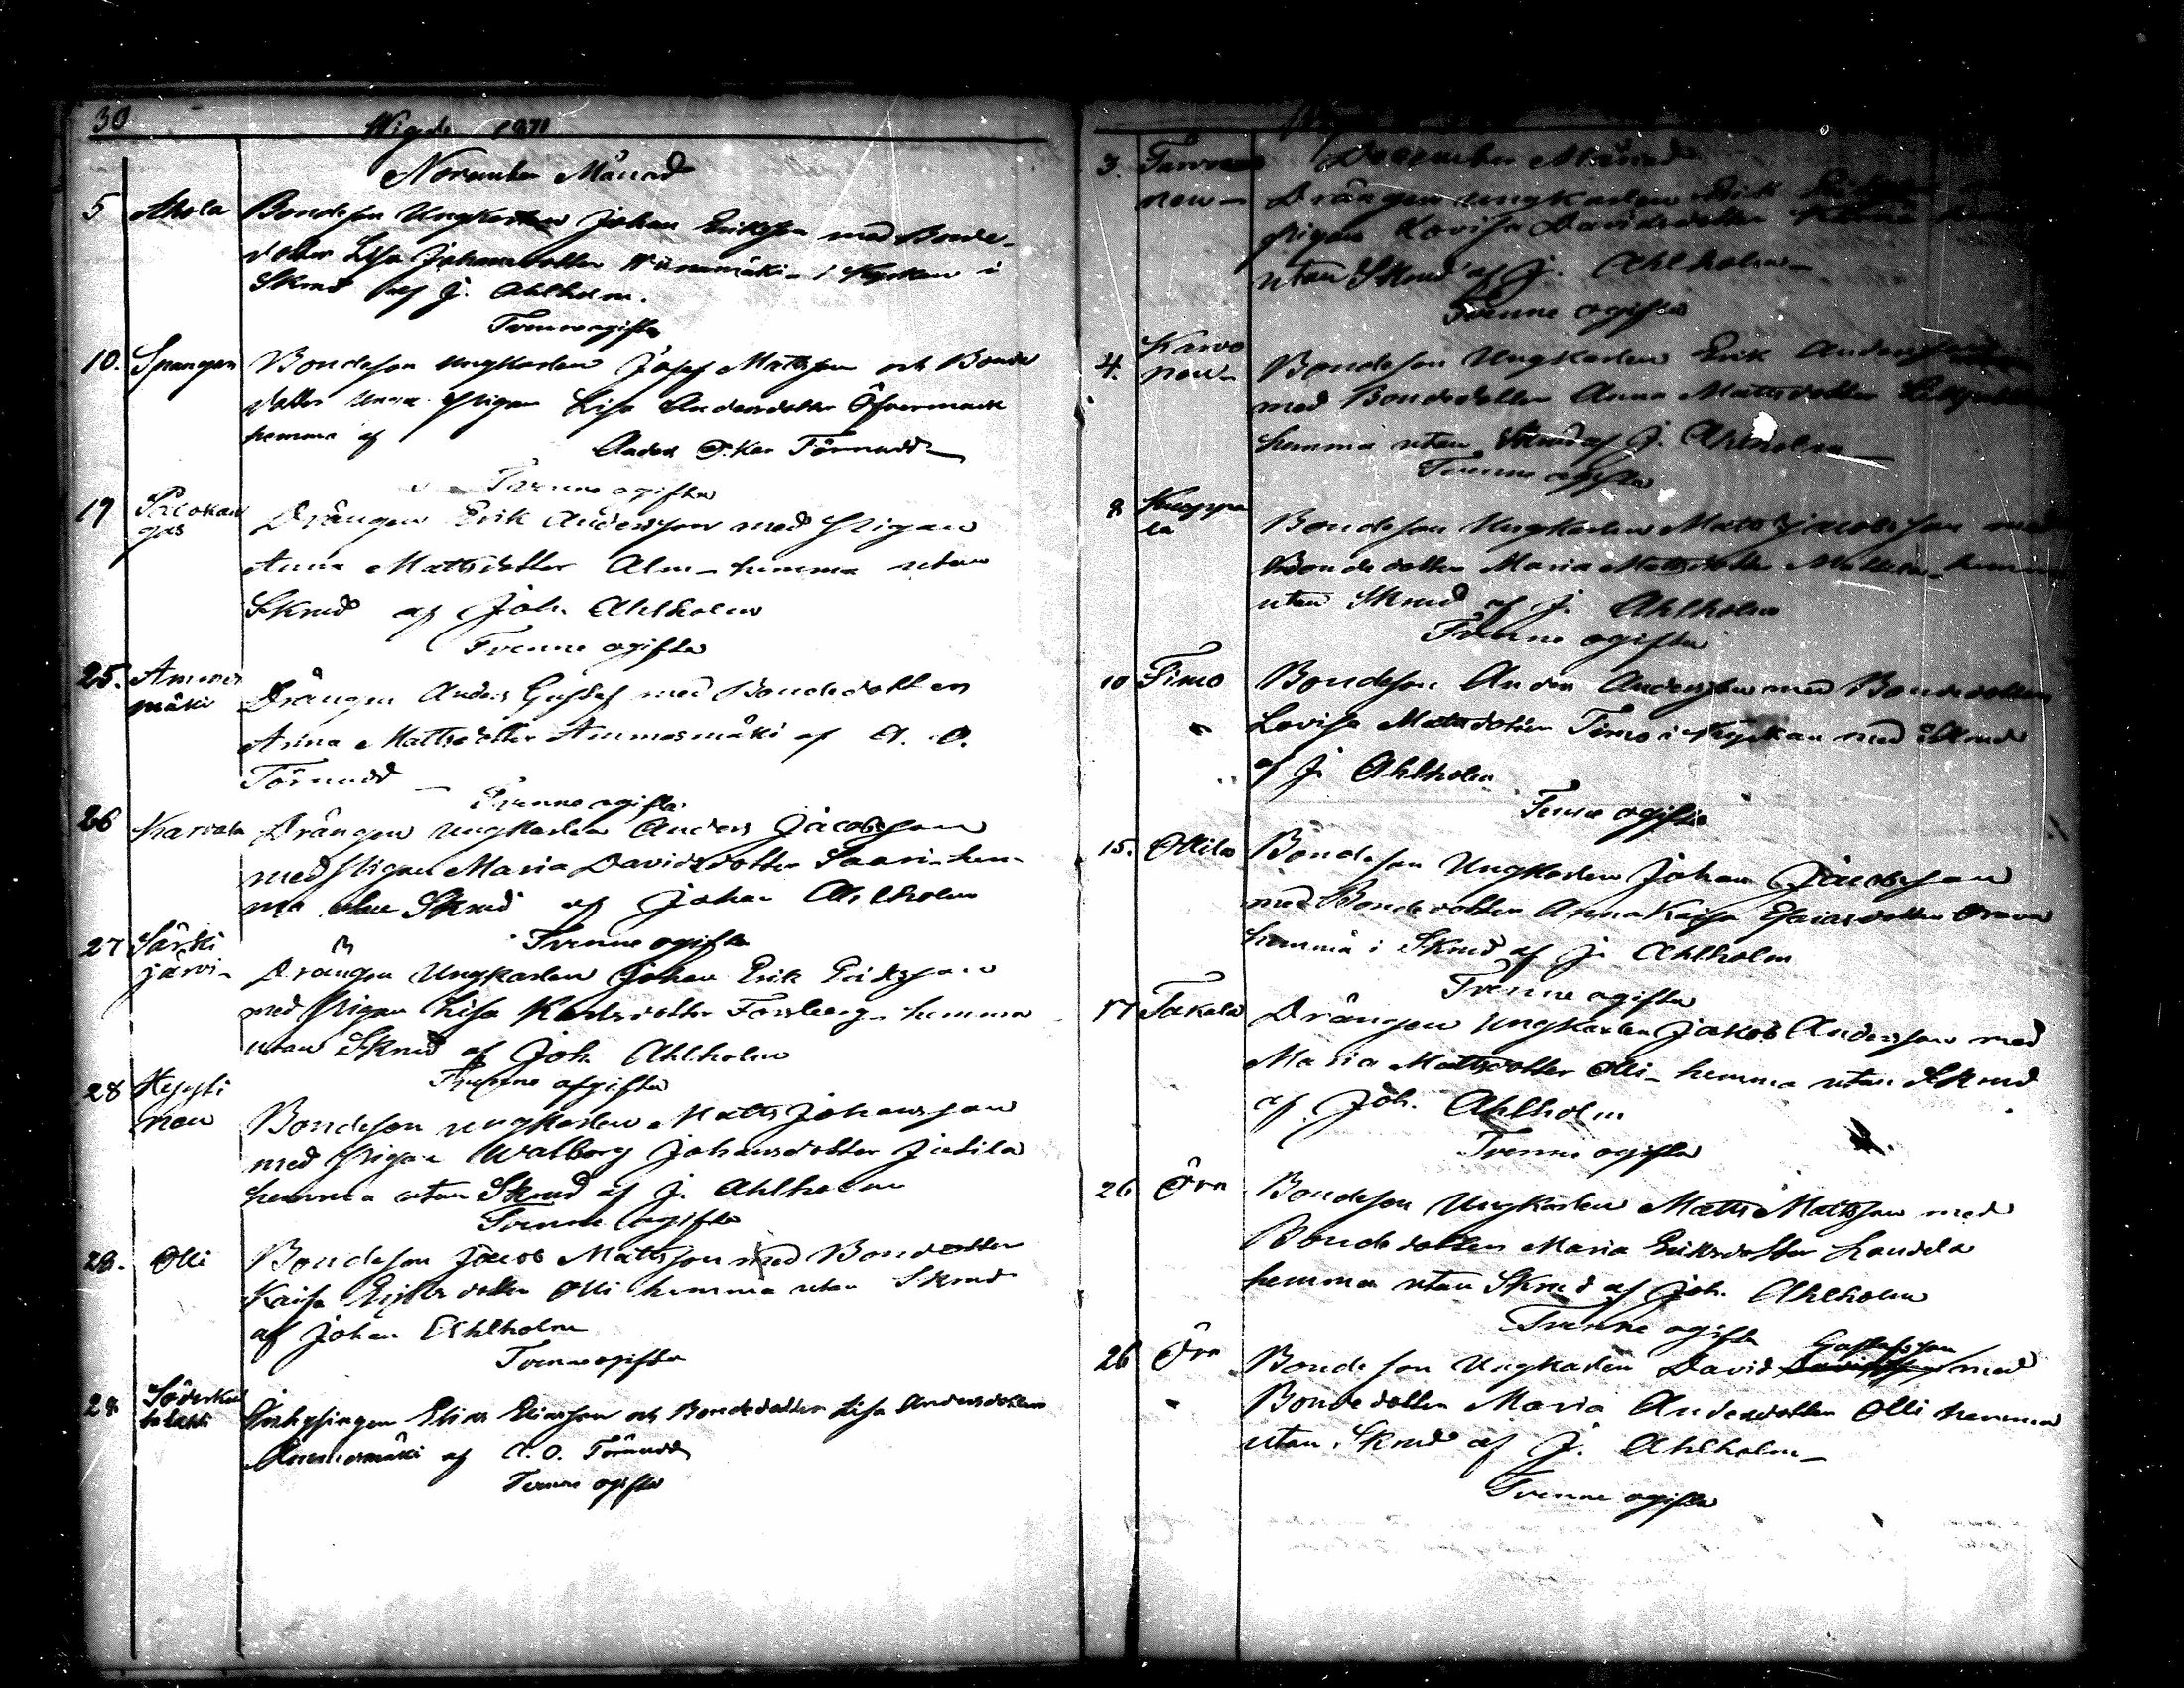 30
Wigde 1871
November Månad
5 Ahola Bondeson Ungkarlen Johan Eriksson med Bonde-
dotter Lisa Johansdotter Niinimäki i Kyrkan i
Skrud af J. Ahlholm.
Tvenne ogifta
10. Spangar Bondeson ungkarlen Josef Mattsson och Bonde
dotter unga pigan Lisa Andersdotter Öfvermark
hemma af Anders Oskar Törnudd
Tvenne ogifta
19 Palokan
gas Drängen Erik Andersson med Pigan
Anna Mattsdotter Alm - hemma utan
Skrud af Joh. Ahlholm
Tvenne ogifta
25. Ammes
mäki Drängen Anders Gustaf med Bondedottern
Anna Mattsdotter Ammesmäki af A. O.
Törnudd
Tvenne ogifta
26 Karvala Drängen Ungkarlen Anders Jacobsson
med Pigan Maria Davidsdotter Saari - hem-
ma utan Skrud af Johan Ahlholm
Tvenne ogifta
27 Särki
järvi - Drängen Ungkarlen Johan Erik Eriksson
med Pigan Lisa Karlsdotter Forsberg - hemma
utan Skrud af Joh. Ahlholm
Tvenne ogifta
28 Hyyti
nen Bondeson ungkarlen Matts Johansson
med Pigan Walborg Johansdotter Jutila
hemma utan Skrud af J. Ahlholm
Tvenne ogifta
29. Olli Bondeson Jacob Mattsson med Bondedotter
Kaisa Eriksdotter Olli hemma utan Skrud
af Johan Ahlholm
Tvenne ogifta
28 Inhysingen Elias Eliasson och Bondedotter Lisa Andersdotter
Ammesmäki af A. O. Törnudd
Tvenne ogifta
December Månad
3. Drängen ungkarlen Erik
pigan Lovisa Davidsdotter
utan Skrud af J. Ahlholm -
Tvenne ogifta
4. Karvo
nen - Bondeson Ungkarlen Erik Andersson
med Bondedotter Anna Mattsdotter
hemma utan Skrud af J. Ahlholm -
Tvenne ogifta
8 Knuppa
la Bondeson Ungkarlen Matts Jacobsson med
Bondedotter Maria Mattsdotter hemma
utan Skrud af J. Ahlholm
Tvenne ogifta
10 Timo Bondeson Anders Andersson med Bondedottern
" Lovisa Mattsdotter Timo i Kyrkan med Skrud
af J. Ahlholm
Tvenne ogifta
15. Ollila Bondeson Ungkarlen Johan Jacobsson
med Bondedotter Anna Kaisa Esaiasdotter
hemma i Skrud af J. Ahlholm
Tvenne ogifta
17 Takala Drängen Ungkarlen Jakob Andersson med
Maria Mattsdotter Olli - hemma utan Skrud
af Joh. Ahlholm
Tvenne ogifta
26 Öra Bondeson Ungkarlen Matts Mattsson med
Bondedotter Maria Eriksdotter Landela
hemma utan Skrud af Joh. Ahlholm
Tvenne ogifta
Gustafsson
26 Öra Bondeson Ungkarlen David med
" Bondedotter Maria Andersdotter Olli hemma
utan Skrud af J. Ahlholm -
Tvenne ogifta